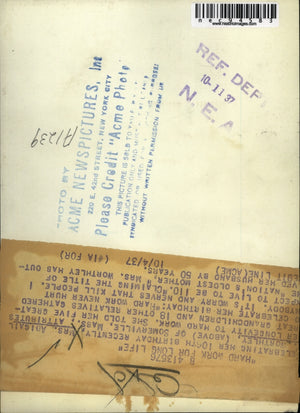 www.historicimages.com
REF. DEPT
10-11 37
N. E. A.
A1239
PHOTO BY
ACME NEWSPICTURES, Inc
220 E. 42nd STREET, NEW YORK CITY
Please Credit "Acme Photo
THIS PICTURE IS SOLD TO
PUBLICATION ONLY AND MUST
SYNDICATED OR USED
WITHOUT WRITTEN PERMISSION FROM US
B 412676
"HARD WORK FOR LONG LIFE"
MRS. ABIGAIL
CELEBRATING HER 100TH BIRTHDAY RECENTLY
(ABOVE) OF SOMERVILLE, MASS., ATTRIBUTES
LONGEVITY TO HARD WORK. SHE TOLD HER FIVE GREAT-
GRANDCHILDREN AND 19 RELATIVES GATHERED
CELEBRATE HER BIRTHDAY: "HARD WORK NEVER HURT
IT'S WORRY AND NERVES THAT KILL PEOPLE. I
TO LIVE TO BE 110." CLAIMING THE TITLE OF
NATION'S OLDEST MOTHER, MRS. NORTHLEY HAS OUT-
HER HUSBAND BY 50 YEARS.
LINE (ACME) 10/4/37